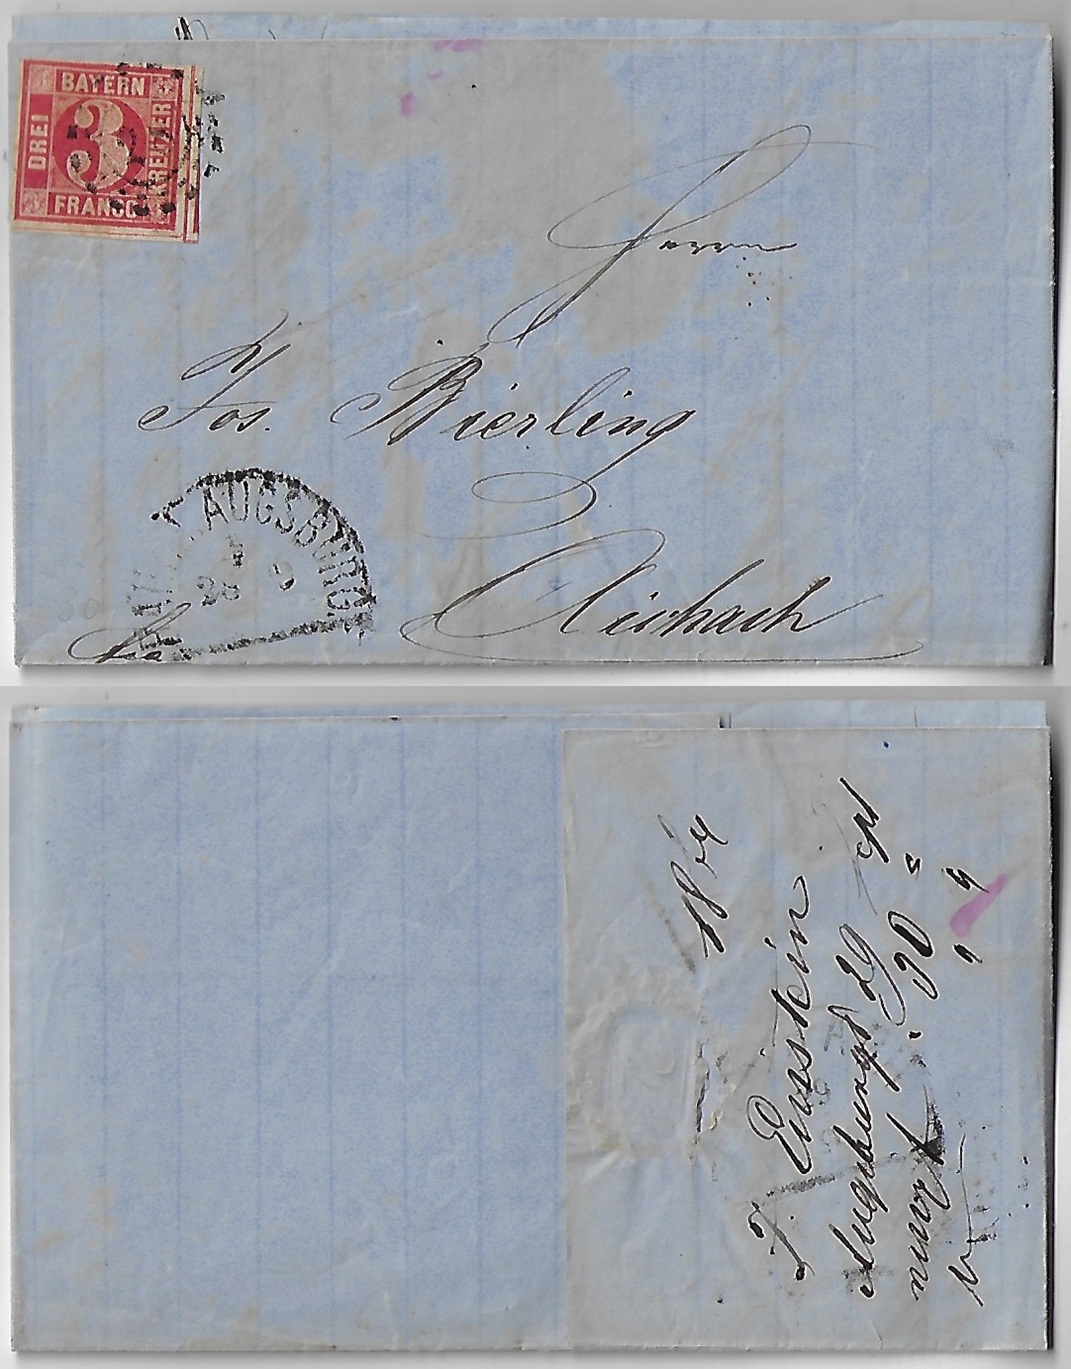 BAYERN
DREI
3
KREUZER
FRANCO
Herrn
Jos. Bierling
AUGSBURG
28 9
Aichach
1864
J. Einstein
Augsburg d 29 Spt
30